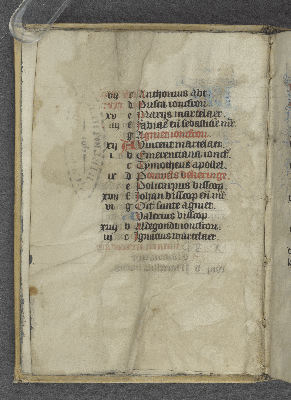 vij e Anthonius abt
d Prisca ioncfrou
xv e Marijs martelaer
iiij f Fabiaen en sebastiaen mr
g Agniet ioncfrou
xij A Vincent martelaer
i b Emerentiana ionc
c Tymotheus apostel
ix d Pouwels bekeringe
e Policarpus bisscop
xvij f Johan bisscop en mr
vi g Oct sunte agniet
A Valerius bisscop
xiiij b Aldegondis ioncfrou
iij c Ignatius martelaer